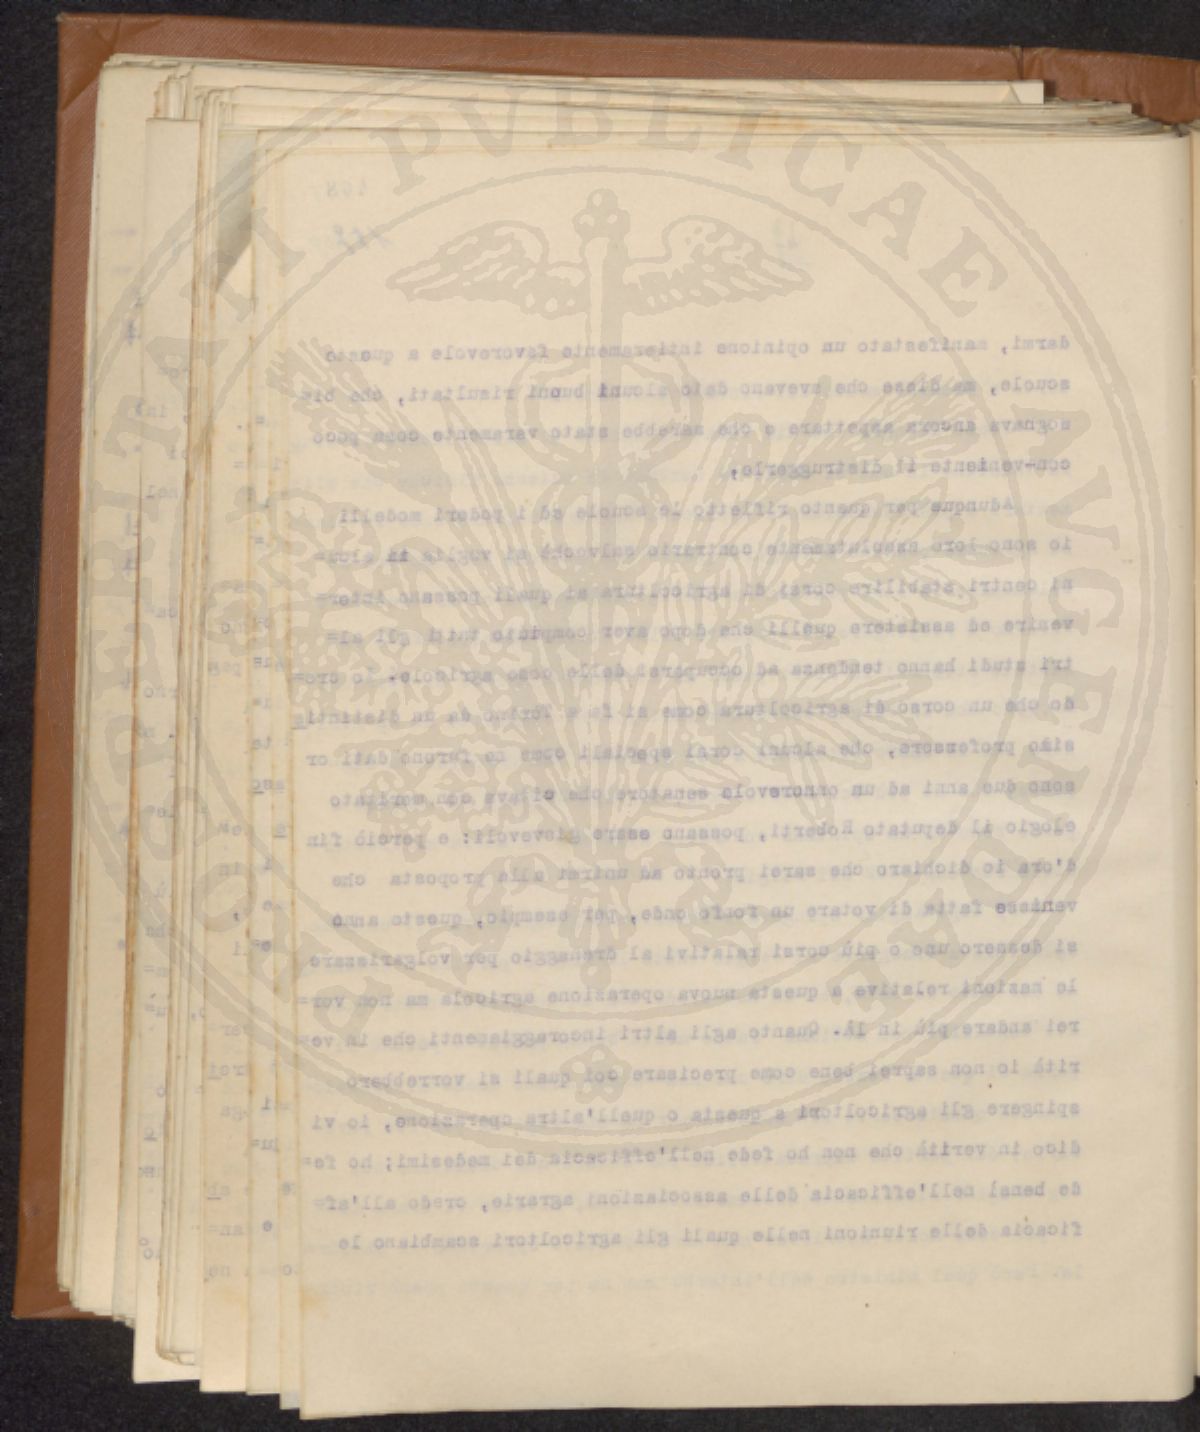 darmi, manifestato un opinione intieramente favorevole a queste
scuole, ma disse che avevano dato alcuni buoni risultati, che bi=
sognava ancora aspettare e che sarebbe stato veramente cosa poco
con-veniente il distruggerle,
Adunque per quanto rifletto le scuole ed i poderi modelli
io sono loro assolutamente contrario salvochè si voglia in alcu=
ni centri stabilire corsi di agricoltura ai quali possano inter=
venire ed assistere quelli che dopo aver compiuto tutti gli al=
tri studi hanno tendenza ad occuparsi delle cose agricole. Io cre=
do che un corso di agricoltura come si fa a Torino da un distintis
simo professore, che alcuni corsi speciali come ne furono dati or
sono due anni ad un onorevole senatore che citava con meritato
elogio il deputato Roberti, possano essre giovevoli: e perciò fin
d'ora io dichiaro che sarei pronto ad unirmi alla proposta che
venisse fatta di votare un fondo onde, per esempio, questo anno
si dessero uno o più corsi relativi al drenaggio per volgarizzare
le nozioni relative a questa nuova operazione agricola ma non vor=
rei andare più in là. Quanto agli altri incoraggiamenti che in ve=
rità io non saprei bene come precisare coi quali si vorrebbero
spingere gli agricoltori a questa o quell'altra operazione, io vi
dico in verità che non ho fede nell'efficacia dei medesimi; ho fe=
de bensì nell'efficacia delle associazioni agrarie, credo all'ef=
ficacia delle riunioni nelle quali gli agricoltori scambiano le
PROSPERITATI PVBLICAE AVGENDAE